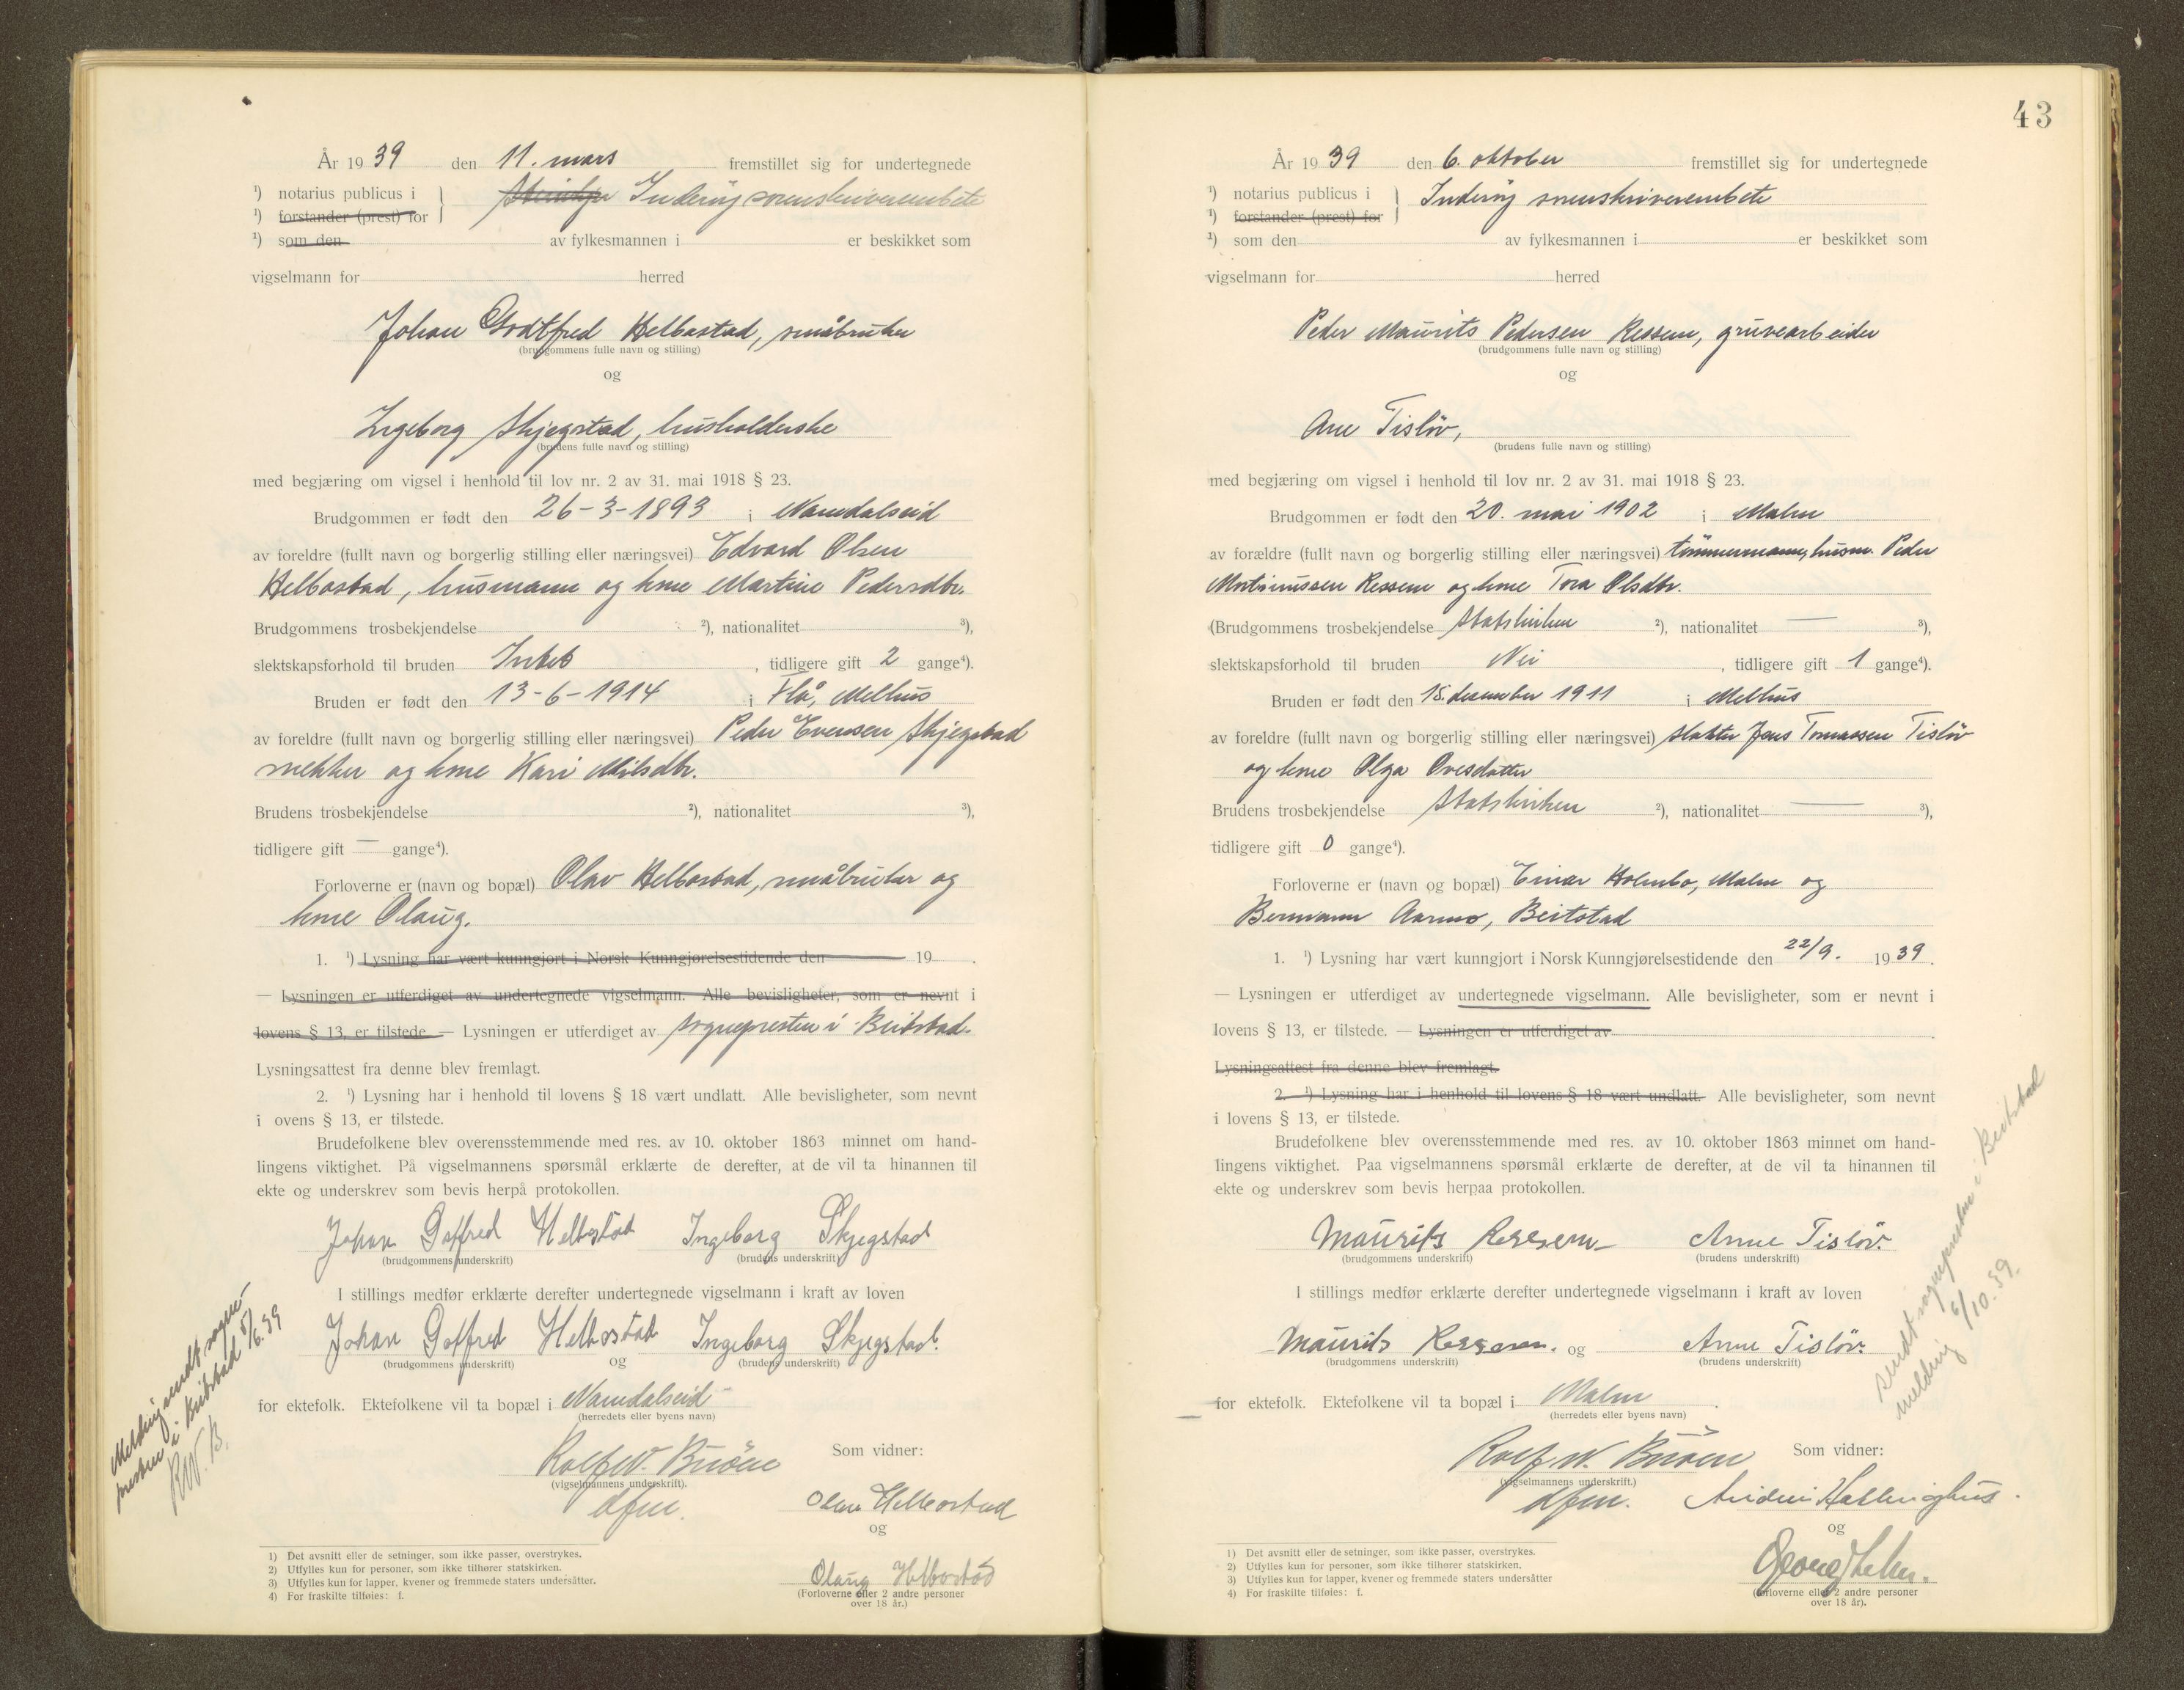 År 1939 den 11. mars fremstillet sig for undertegnede
1) notarius publicus i
Steinkjer Inderøy sorenskriverembete
1) forstander (prest) for
1) som den av fylkesmannen i er beskikket som
vigselmann for herred
Johan Godtfred Helbostad, småbruker
(brudgommens fulle navn og stilling)
og
Ingeborg Skjegstad, husholderske
(brudens fulle navn og stilling)
med begjæring om vigsel i henhold til lov nr. 2 av 31. mai 1918 § 23.
Brudgommen er født den 26-3-1893 i Namdalseid
av foreldre (fullt navn og borgerlig stilling eller næringsvei) Edvard Olsen
Helbostad, husmann og kone Martine Pedersdtr.
Brudgommens trosbekjendelse 2), nationalitet 3),
slektskapsforhold til bruden Intet, tidligere gift 2 gange4).
Bruden er født den 13-6-1914 i Flå, Melhus
av foreldre (fullt navn og borgerlig stilling eller næringsvei) Peder Evensen Skjegstad
snekker og kone Kari Nilsdtr.
Brudens trosbekjendelse 2), nationalitet 3),
tidligere gift — gange4).
Forloverne er (navn og bopæl) Olav Helbostad, småbruker og
kone Olaug.
1. 1) Lysning har vært kunngjort i Norsk Kunngjørelsestidende den 19 .
— Lysningen er utferdiget av undertegnede vigselmann. Alle bevisligheter, som er nevnt i
lovens § 13, er tilstede. — Lysningen er utferdiget av sognepresten i Beitstad.
Lysningsattest fra denne blev fremlagt.
2. 1) Lysning har i henhold til lovens § 18 vært undlatt. Alle bevisligheter, som nevnt
i ovens § 13, er tilstede.
Brudefolkene blev overensstemmende med res. av 10. oktober 1863 minnet om hand-
lingens viktighet. På vigselmannens spørsmål erklærte de derefter, at de vil ta hinannen til
ekte og underskrev som bevis herpå protokollen.
Johan Gotfred Helbostad Ingeborg Skjegstad
(brudgommens underskrift) (brudens underskrift)
I stillings medfør erklærte derefter undertegnede vigselmann i kraft av loven
Johan Gotfred Helbostad Ingeborg Skjegstad.
(brudgommens underskrift) og (brudens underskrift)
for ektefolk. Ektefolkene vil ta bopæl i Namdalseid
(herredets eller byens navn)
Rolf W. Buöen Som vidner:
(vigselmannens underskrift).
dfm. Olav Helbostad
og
Olaug Helbostad
(Forloverne eller 2 andre personer
over 18 år.)
1) Det avsnitt eller de setninger, som ikke passer, overstrykes.
2) Utfylles kun for personer, som ikke tilhører statskirken.
3) Utfylles kun for lapper, kvener og fremmede staters undersåtter.
4) For fraskilte tilføies: f.
Melding sendt sogne-
presten i Beitstad 5/6.39
RW.B.
43
År 1939 den 6. oktober fremstillet sig for undertegnede
1) notarius publicus i
Inderøy sorenskriverembete
1) forstander (prest) for
1) som den av fylkesmannen i er beskikket som
vigselmann for herred
Peder Maurits Pedersen Ressem, gruvearbeider
(brudgommens fulle navn og stilling)
og
Ane Tisløv,
(brudens fulle navn og stilling)
med begjæring om vigsel i henhold til lov nr. 2 av 31. mai 1918 § 23.
Brudgommen er født den 20. mai 1902 i Malm
av forældre (fullt navn og borgerlig stilling eller næringsvei) tømmermann, husm. Peder
Mortinussen Ressem og kone Tora Olsdtr.
(Brudgommens trosbekjendelse Statskirken 2), nationalitet — 3),
slektskapsforhold til bruden Nei, tidligere gift 1 gange4).
Bruden er født den 18. desember 1911 i Melhus
av foreldre (fullt navn og borgerlig stilling eller næringsvei) slakter Jens Tomassen Tisløv
og kone Olga Ovesdatter
Brudens trosbekjendelse Statskirken 2), nationalitet — 3),
tidligere gift 0 gange4).
Forloverne er (navn og bopæl) Einar Holmbo, Malm og
Bermann Aarmo, Beitstad
1. 1) Lysning har vært kunngjort i Norsk Kunngjørelsestidende den 22/9. 1939.
— Lysningen er utferdiget av undertegnede vigselmann. Alle bevisligheter, som er nevnt i
lovens § 13, er tilstede. — Lysningen er utferdiget av .
Lysningsattest fra denne blev fremlagt.
2. 1) Lysning har i henhold til lovens § 18 vært undlatt. Alle bevisligheter, som nevnt
i lovens § 13, er tilstede.
Brudefolkene blev overensstemmende med res. av 10. oktober 1863 minnet om hand-
lingens viktighet. Paa vigselmannens spørsmål erklærte de derefter, at de vil ta hinannen til
ekte og underskrev som bevis herpaa protokollen.
Maurits Ressem Anne Tisløv.
(brudgommens underskrift) (brudens underskrift)
I stillings medfør erklærte derefter undertegnede vigselmann i kraft av loven
Maurits Ressem. og Anne Tisløv.
(brudgommens underskrift) (brudens underskrift)
for ektefolk. Ektefolkene vil ta bopæl i Malm .
(herredets eller byens navn)
Rolf W. Buöen Som vidner:
(vigselmannens underskrift.)
dfm.
og
(Forloverne eller 2 andre personer
over 18 år).
1) Det avsnitt eller de setninger, som ikke passer, overstrykes.
2) Utfylles kun for personer, som ikke tilhører statskirken.
3) Utfylles kun for lapper, kvener og fremmede staters undersåtter
4) For fraskilte tilføies: f.
Sendt sognepresten i Beitstad
melding 6/10.39.